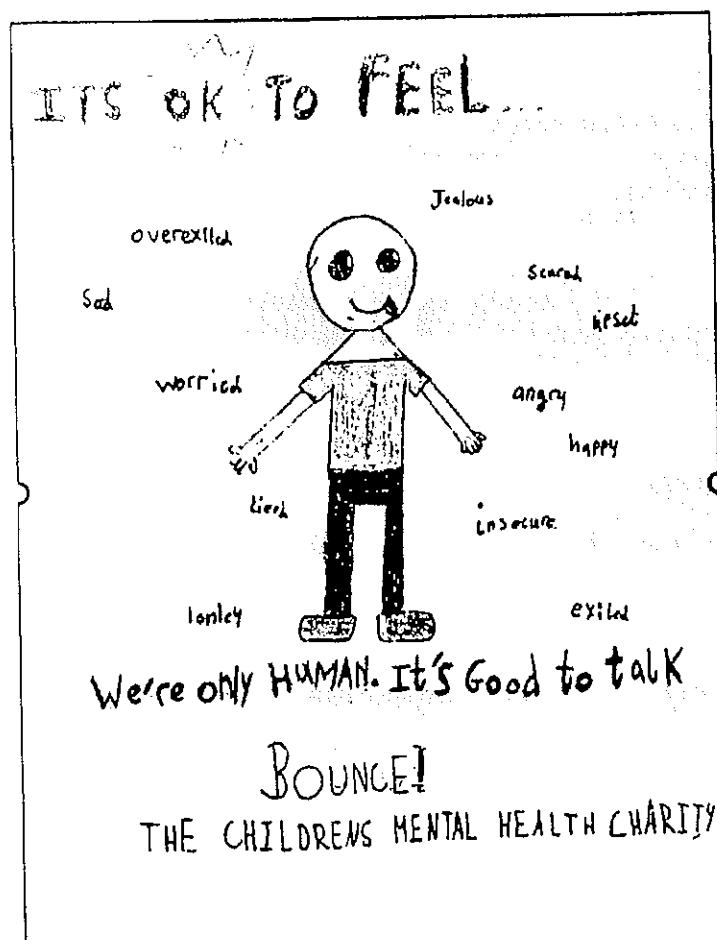 ITS OK TO FEEL...
Jealous
overexited
scared
Sad
upset
worried
angry
happy
tired
insecure
lonley
exited
We're only HUMAN. It's Good to talk
BOUNCE!
THE CHILDRENS MENTAL HEALTH CHARITY